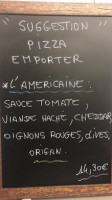 "SUGGESTION"
PIZZA
EMPORTER
*L'AMERICAINE:
SAUCE TOMATE,
VIANDE HACHÉ, CHEDDAR,
OIGNONS ROUGES, OLIVES,
ORIGAN.
14,30€